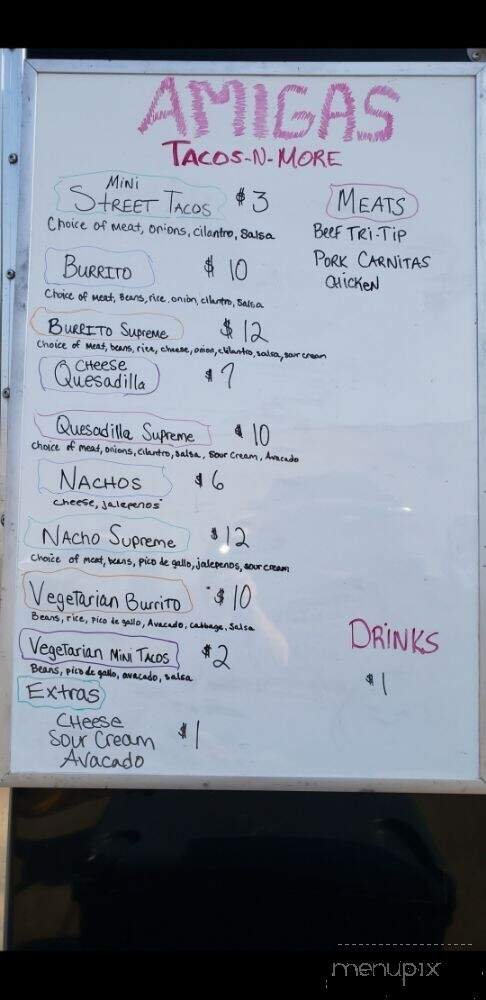 AMIGAS
TACOS-N-MORE
MINI
STREET TACOS $3
Choice of meat, onions, cilantro, Salsa
BURRITO $10
Choice of meat, Beans, rice, onion, cilantro, Salsa
BURRITO Supreme $12
Choice of meat, beans, rice, cheese, onion, cilantro, salsa, sour cream
CHEESE
Quesadilla $7
Quesadilla Supreme $10
Choice of meat, onions, cilantro, salsa, Sour Cream, Avacado
NACHOS $6
cheese, jalepenos
NACHO Supreme $12
Choice of meat, beans, pico de gallo, jalepenos, sour cream
VegeTarian Burrito $10
Beans, rice, pico de gallo, Avacado, cabbage, Salsa
VegeTarian MINI TACOS $2
Beans, pico de gallo, avacado, salsa
Extras
CHEESE
Sour Cream $1
Avacado
MEATS
BEEF TRI-TIP
PORK CARNITAS
CHICKEN
DRINKS
$1
menupix